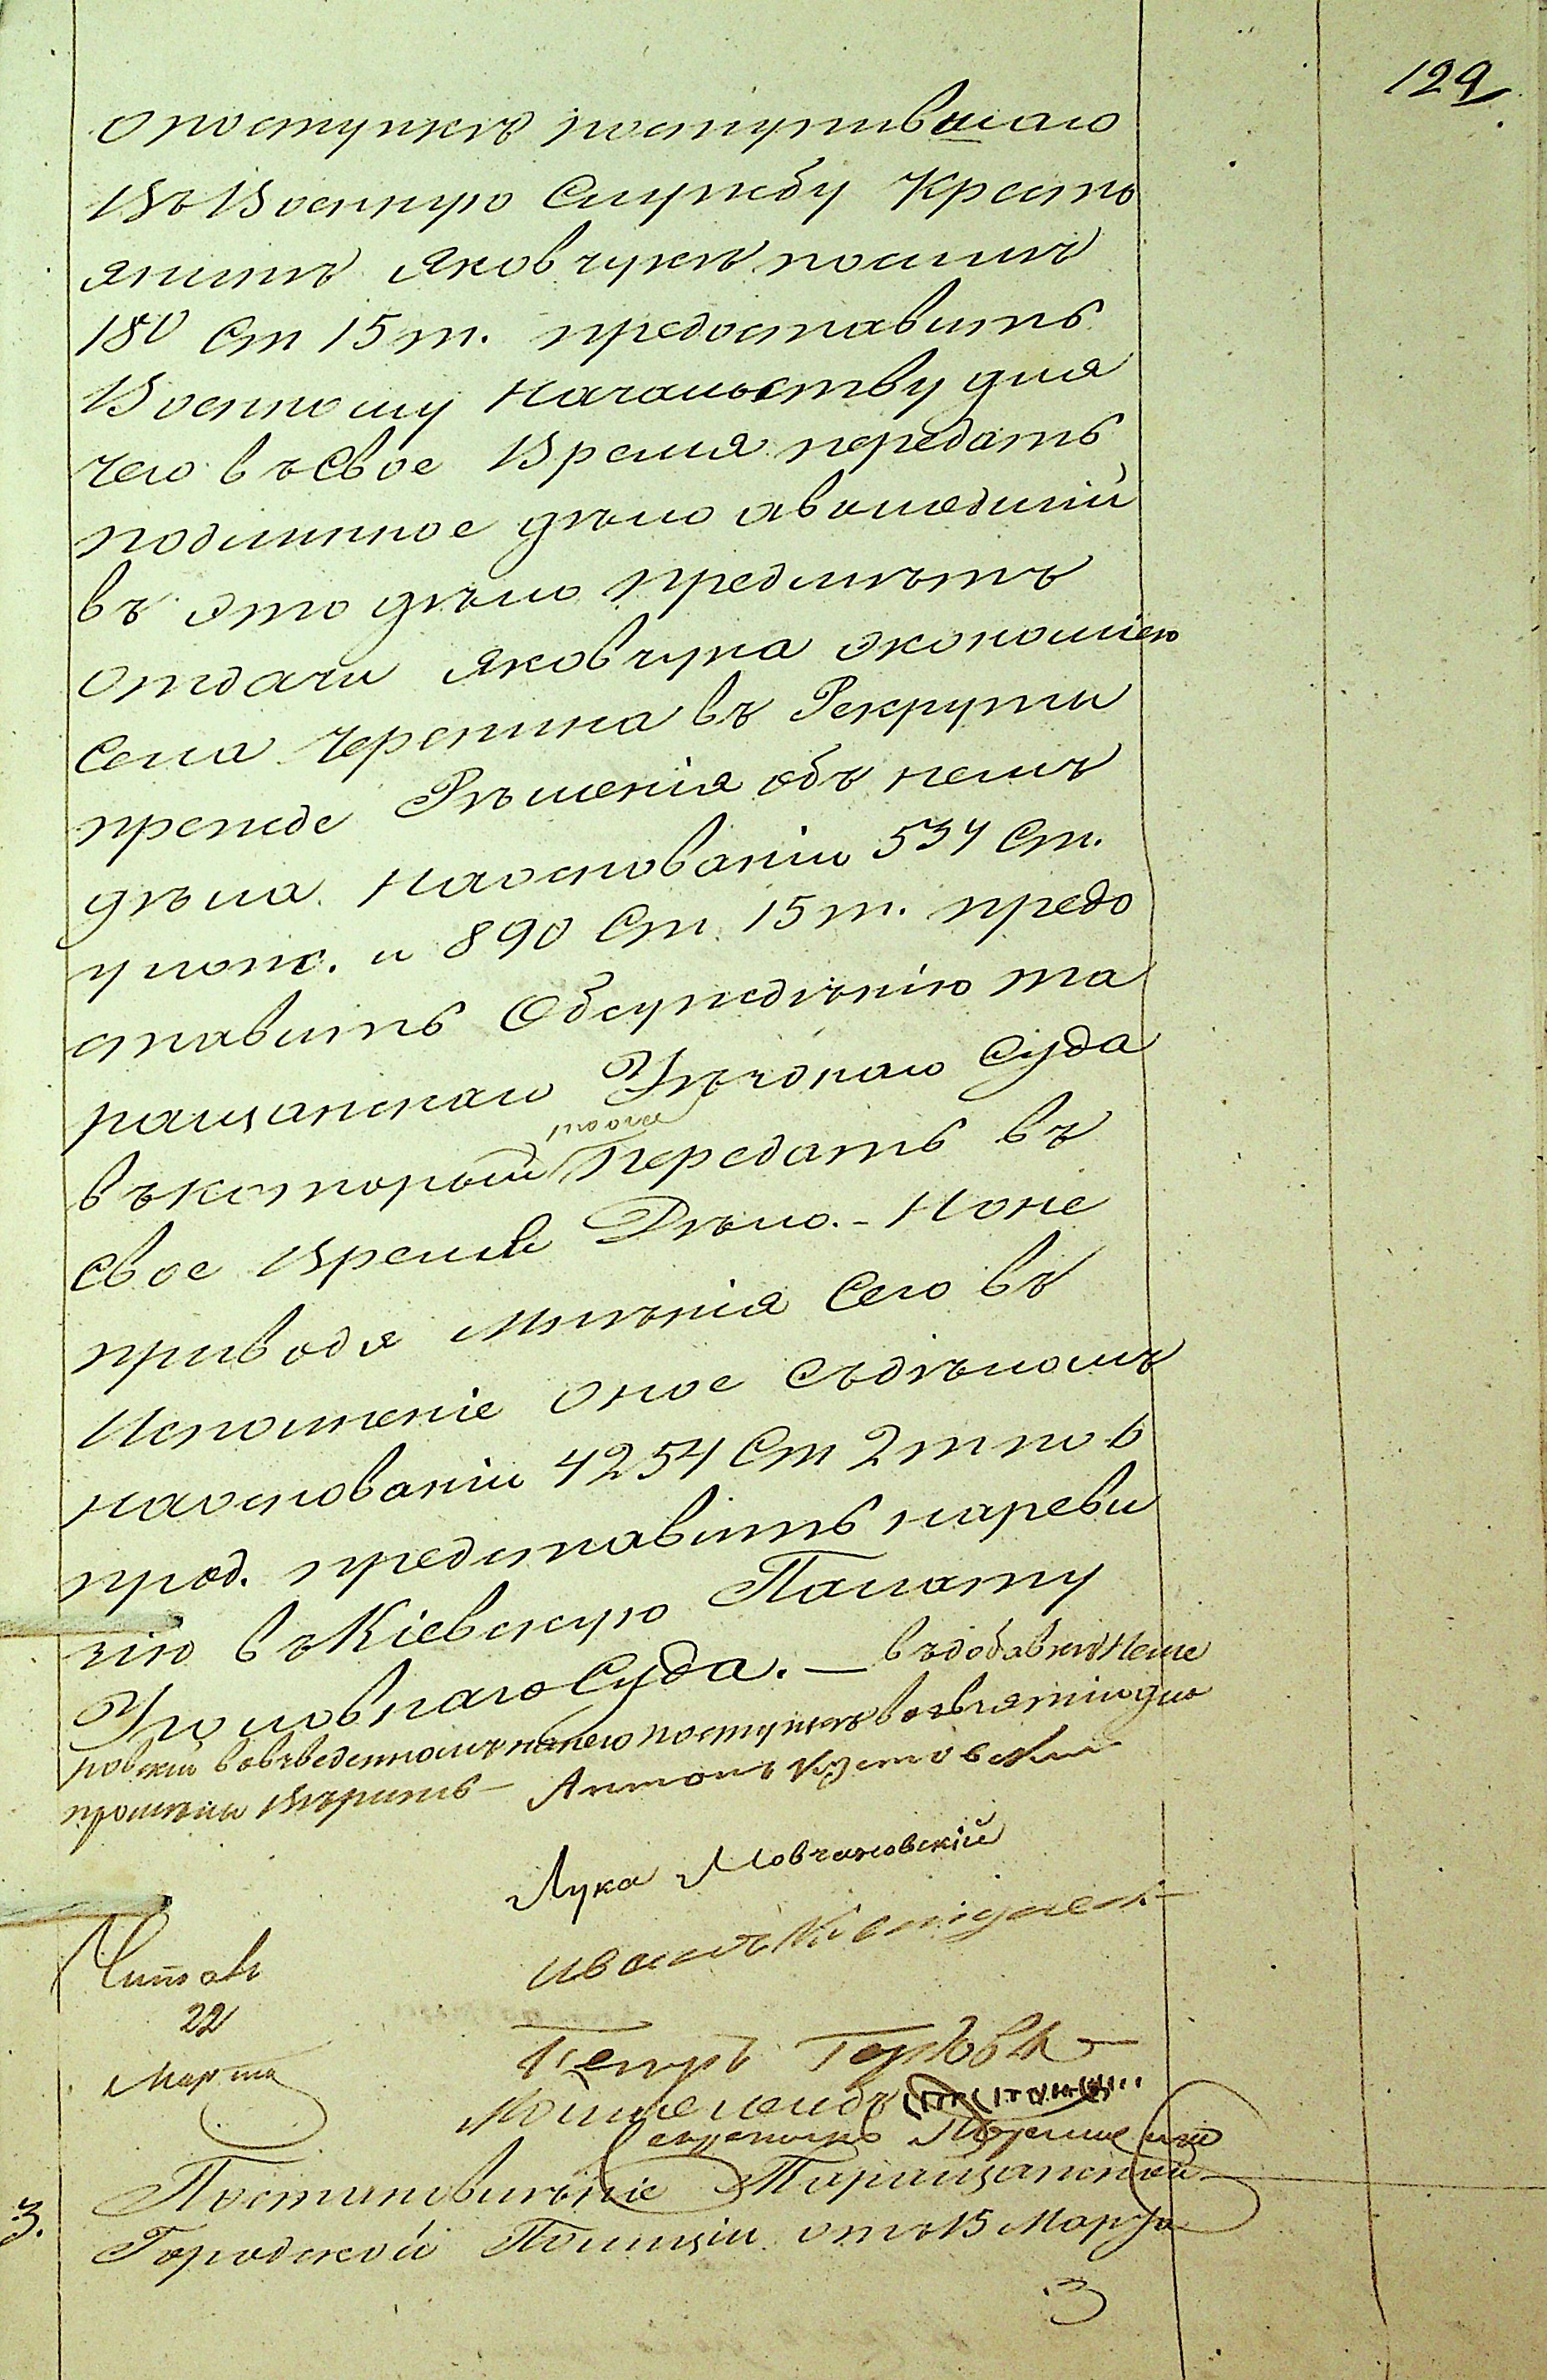 129
опоступкѣ поступившаго
Въ Военную Службу Кресть
янинѣ Яковчукѣ посилѣ
180 Ст 15 т. предоставить
Военному Начальству для
чего въ свое Время передать
подлинное дѣло авошедшій
въ это дѣло предмѣтъ
отдачи Яковчука экономіею
Села Черепина въ Рекруты
прежде Рѣшенія объ немъ
дѣла. На основаніи 534 Ст.
улож. и 890 Ст. 15 т. предо
ставить Обсужденію та
ращанскаго Уѣзднаго Суда
въ который Передать въ
свое Время Дѣло. - Ноне
приводя Мнѣнія Сего въ
Исполненіе оное съдѣломъ
на основаніи 4254 Ст 2 т по 6
прод. представить на реви
зію въ Кіевскую Палату
Уголовнаго Суда. — въдобавки
Антонъ
Лука Мовчановскій
Читалъ
22
Марта
Петръ
3. Постановленіе Таращанской
Городской Полиціи отъ 15 Марта
3